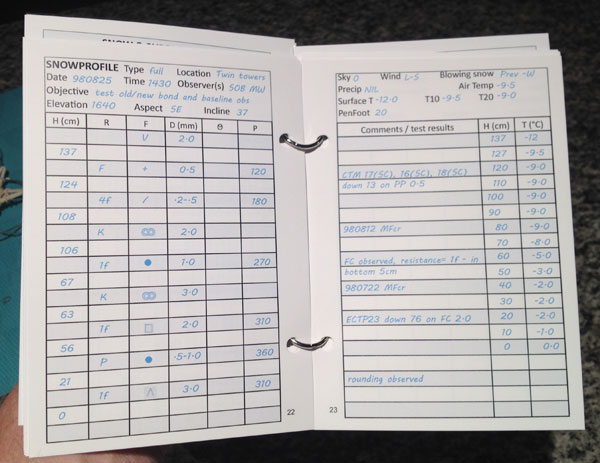 SNOWPROFILE Type full Location Twin towers
Date 980825 Time 1430 Observer(s) SOB MW
Objective test old/new bond and baseline obs
Elevation 1640 Aspect SE Incline 37
H (cm) R F D (mm) Θ P
V 2.0
137
F + 0.5 120
124
4f / .2-.5 180
108
K 2.0
106
1f ● 1.0 270
67
K 3.0
63
1f □ 2.0 310
56
P ● .5-1.0 360
21
1f ∧ 3.0 310
0
22
Sky 0 Wind L-S Blowing snow Prev -W
Precip NIL Air Temp -9.5
Surface T -12.0 T10 -9.5 T20 -9.0
PenFoot 20
Comments / test results H (cm) T (°C)
137 -12
127 -9.5
CTM 17(SC), 16(SC), 18(SC) 120 -9.0
down 13 on PP 0.5 110 -9.0
100 -9.0
90 -9.0
980812 MFcr 80 -9.0
70 -8.0
FC observed, resistance= 1f - in 60 -5.0
bottom 5cm 50 -3.0
980722 MFcr 40 -2.0
30 -2.0
ECTP23 down 76 on FC 2.0 20 -2.0
10 -1.0
0 0.0
rounding observed
23